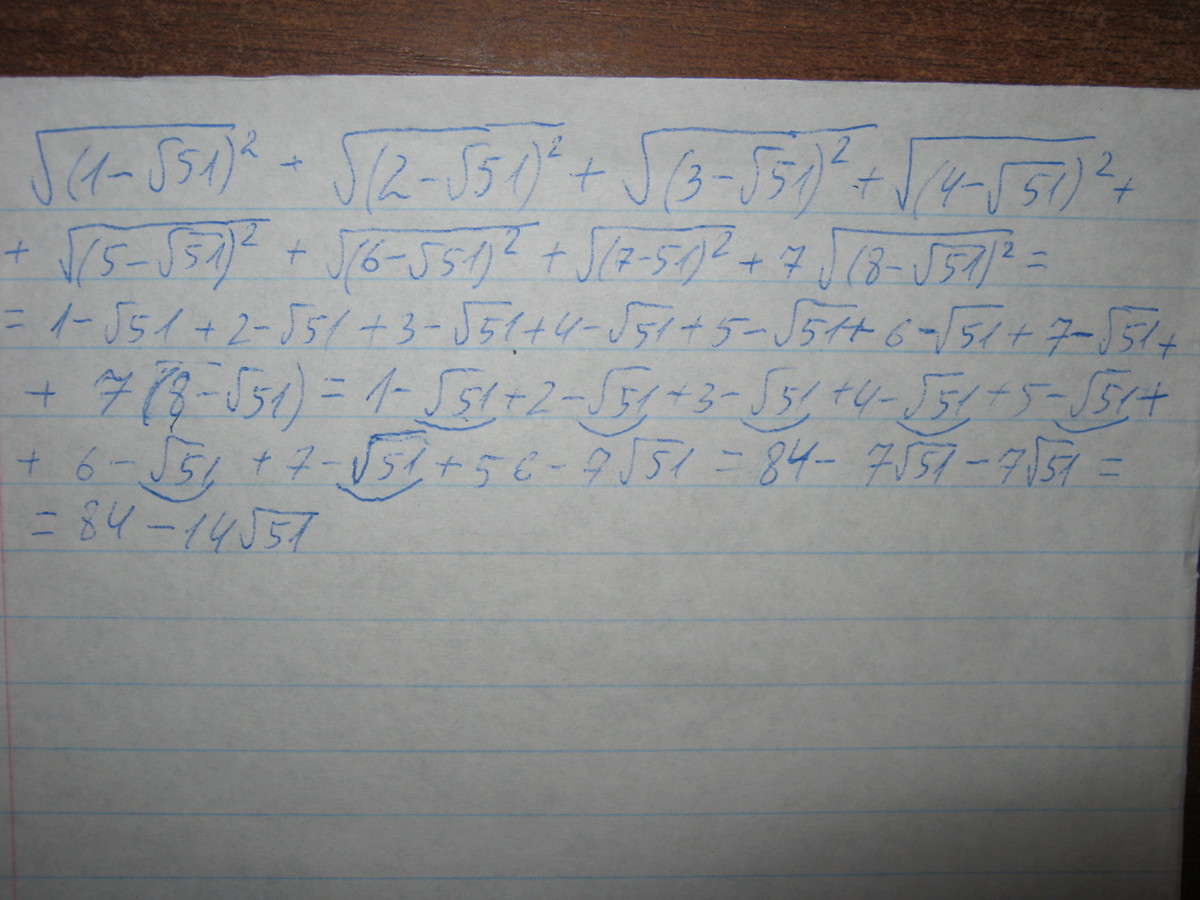 √(1-√51)² + √(2-√51)² + √(3-√51)² + √(4-√51)² +
+ √(5-√51)² + √(6-√51)² + √(7-51)² + 7 √(8-√51)² =
= 1-√51 + 2-√51 + 3-√51 + 4-√51 + 5-√51 + 6-√51 + 7-√51 +
+ 7 (8-√51) = 1-√51 + 2-√51 + 3-√51 + 4-√51 + 5-√51 +
+ 6-√51 + 7-√51 + 56 - 7√51 = 84 - 7√51 - 7√51 =
= 84 - 14√51